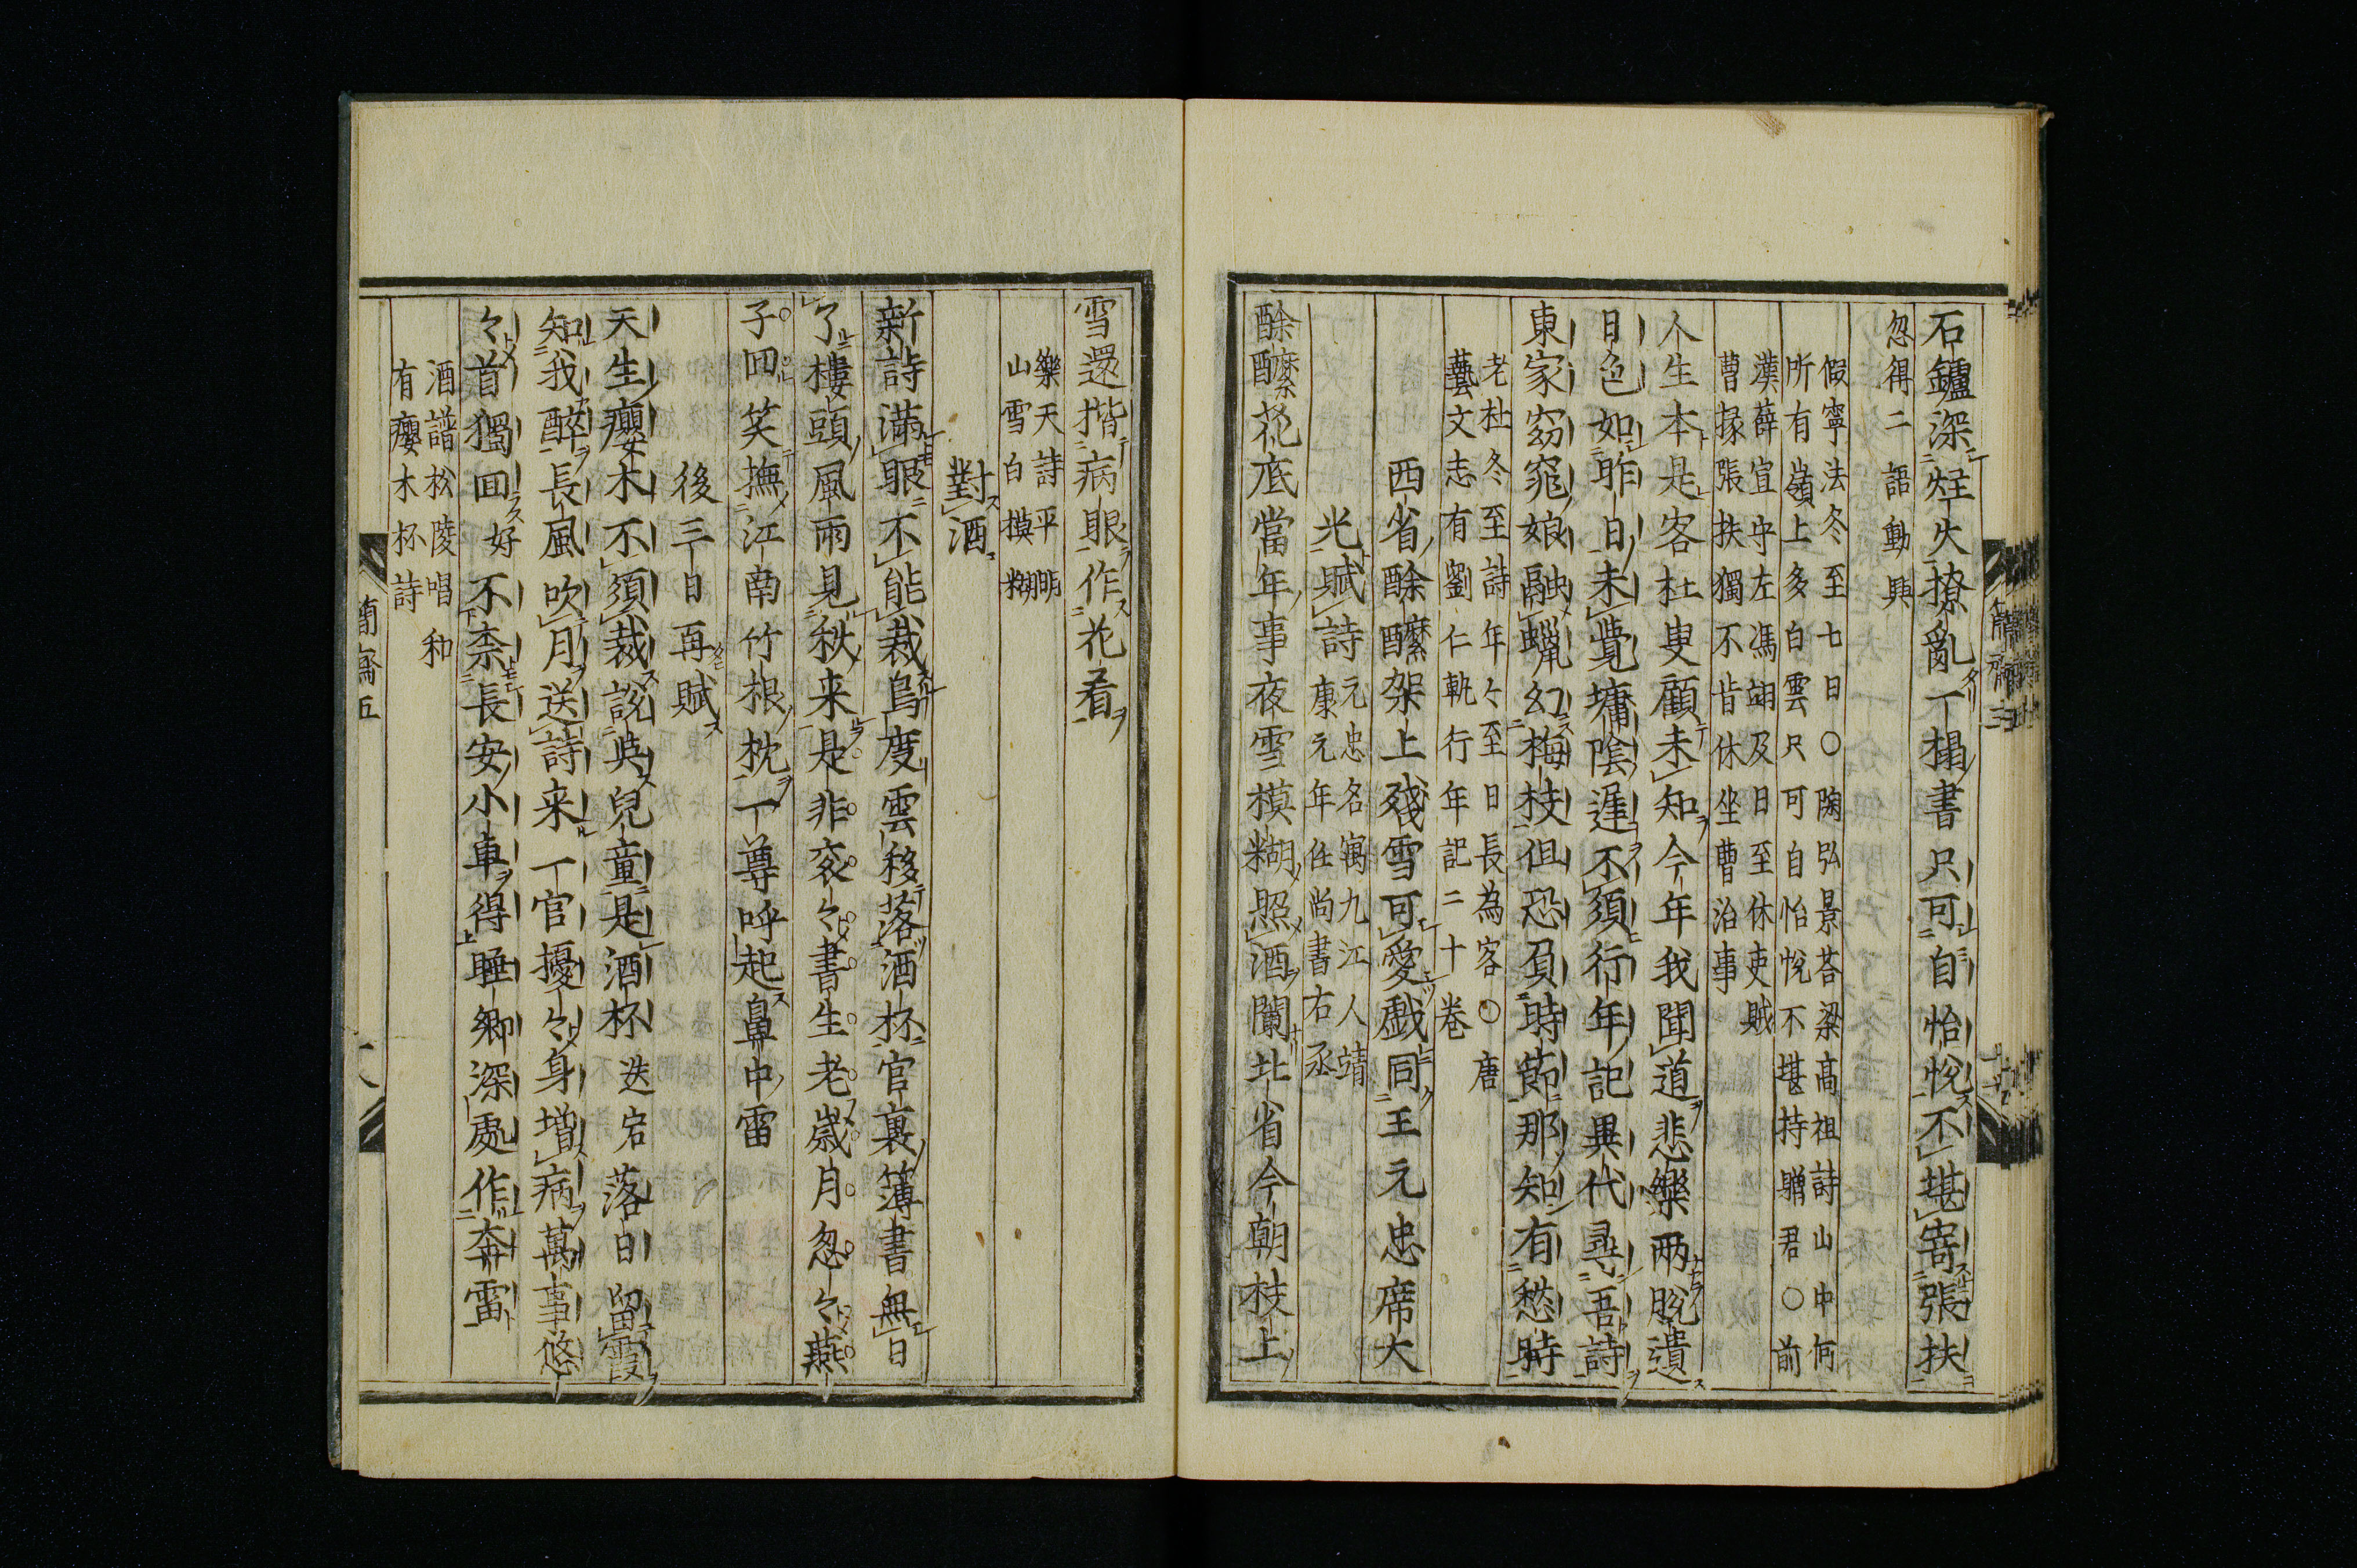 石鑪深炷火撩亂一榻書只可自怡悅不堪寄張扶
忽得二語動興
假寧法冬至七日○陶弘景荅梁髙祖詩山中何
所有嶺上多白雲只可自怡悅不堪持贈君○前
漢薛宣守左馮翊及日至休吏賊
曹掾張扶獨不肯休坐曹治事
人生本是客杜叟顧未知今年我聞道悲樂兩脫遺
日色如昨日未覺墉陰遅不須行年記異代尋吾詩
東家窈窕娘融蠟幻梅枝但恐負時節那知有愁時
老杜冬至詩年々至日長為客○唐
藝文志有劉仁軌行年記二十卷
西省酴醾架上殘雪可愛戲同王元忠席大
光賦詩
元忠名寓九江人靖
康元年任尚書右丞
酴醾花底當年事夜雪模糊照酒闌北省今朝枝上
雪還揩病眼作花看
樂天詩平明
山雪白模糊
對酒
新詩満眼不能裁鳥度雲移落酒杯官裏簿書無日
了樓頭風雨見秋来是非衮々書生老歳月忽々燕
子回笑撫江南竹根枕一尊呼起鼻中雷
後三日再賦
天生癭木不須裁說與兒童是酒杯迭宕落日留霞
知我醉長風吹月送詩来一官擾々身增病萬事悠
々首獨回好不柰長安小車得睡鄉深處作奔雷
酒譜松陵唱和
有癭木杯詩
簡齋五